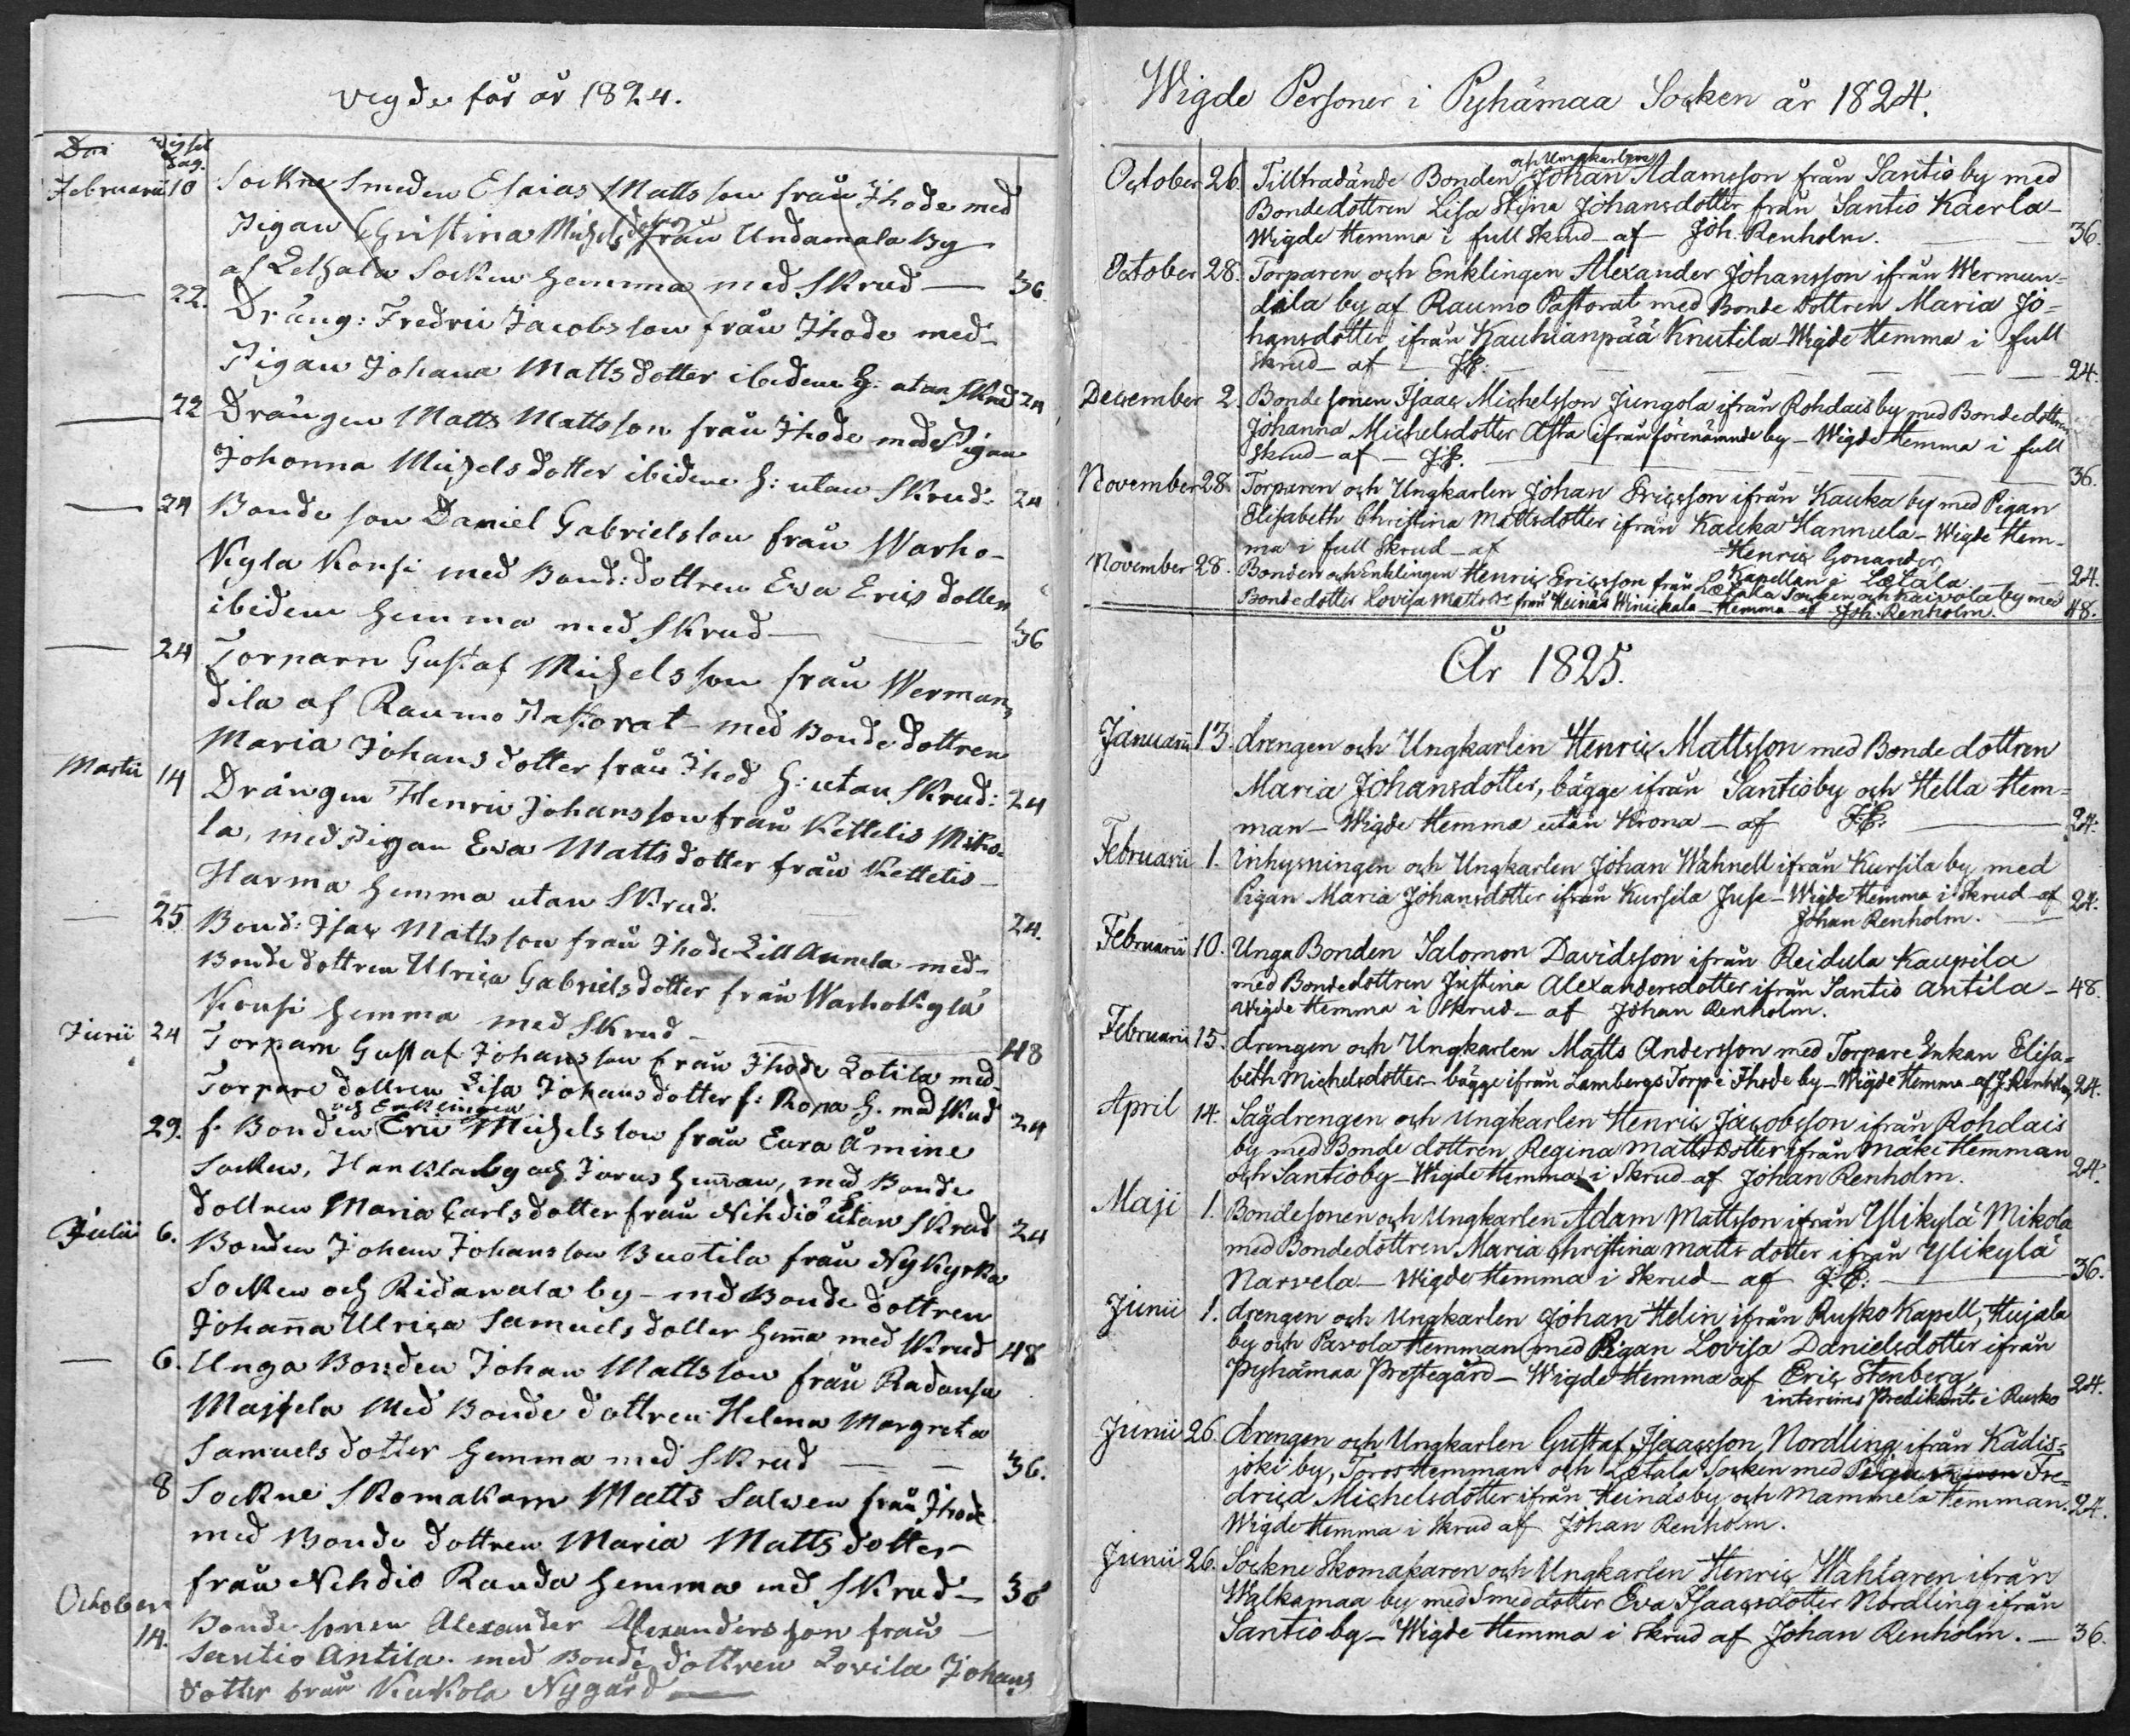 vigde för år 1824.
Februarii 10 Sockne Smeden Esaias Mattsson från Ihode med
Pigan Christina Michelsdotter från Undamala By
af Letala Socken hemma med Skrud — 36.
— 22. Dräng: Fredric Jacobsson från Ihode med
Pigan Johana Mattsdotter ibidem h: utan Skrud 24
— 22 Drängen Matts Mattsson från Ihode med Pigan
Johanna Michelsdotter ibidem h: utan Skrud: 24
— 24 Bonde son Daniel Gabrielsson från Warho-
Kyla Konsi med Bond: dottren Ewa Erics dotter
ibidem hemma med Skrud — 36
— 24 Torparn Gustaf Michelsson från Werman
dila af Raumo Pastorat med Bonde dottren
Maria Johansdotter från Ihod h: utan Skrud: 24
Martii 14 Drängen Henric Johansson från Kettelis Miko-
la, med Pigan Ewa Mattsdotter från Kettelis
Harma hemma utan Skrud. 24.
— 25 Bond: Isac Mattsson från Ihode Lill Annela med
Bonde dottren Ulrica Gabrielsdotter från Warhokylä
Konsi hemma med Skrud — 48
Junii 24 Torparn Gustaf Johansson från Ihode Sotila med
Torpare dottren Lisa Johansdotter f: Rona h. med Skrud 24
och Enklingen
29. f. Bonden Eric Michelsson från Eura Åmine
Socken, Hankla by och Jorus hemman, med Bonde
dottren Maria Carlsdotter från Nihdiö utan Skrud 24
Julii 6. Bonden Johan Johansson Buotila från Nykyrka
Socken och Ridawala by — med Bonde dottren
Johanna Ulrica Samuelsdotter hemma med Skrud 48
— 6. Unga Bonden Johan Mattsson från Radansu
Maijsela Med Bonde dottren Helena Margreta
Samuelsdotter hemma med Skrud — 36.
8 Sockne Skomakarn Matts Salwen från Ihode
med Bonde dottren Maria Mattsdotter
från Nihdiö Rauda hemma med Skrud — 36
October
14. Bonde sonen Alexander Alexandersson från
Santio Antila med Bonde dottren Lovisa Johans
dotter från Kukola Nygård —
Wigde Personer i Pyhämaa Socken år 1824.
och Ungkarlen
October 26. Tillträdande Bonden Johan Adamsson från Santio by med
Bondedottren Lisa Stina Johansdotter från Santio Kaerla-
Wigde Hemma i full Skrud — af Joh. Renholm. — 36.
October 28. Torparen och Enklingen Alexander Johansson ifrån Wermun-
dila by af Raumo Pastorat med Bonde Dottren Maria Jo-
hansdotter, ifrån Kauhianpää Knutila — Wigde Hemma i full
Skrud — af — JR. — 24.
December 2. Bonde sonen Isaac Michelsson Jungola ifrån Rohdais by med Bondedottren
Johanna Michelsdotter Asta ifrån förenämnde by — Wigde Hemma i full
Skrud — af — JR. — 36.
November 28. Torparen och Ungkarlen Johan Ericsson ifrån Kauka by med Pigan
Elisabeth Christina Mattsdotter ifrån Kauka Hannula — Wigde Hem-
ma i full Skrud — af Henric Gonander
Kapellan i Letala — 24.
November 28. Bonden och Enklingen Henric Ericsson från Letala Socken och Kaivola by med
Bondedotter Lovisa Mattsdr från Heinäs Winickala — Hemma af Joh. Renholm. 48.
År 1825.
Januarii 13. drengen och Ungkarlen Henric Mattsson med Bonde dottren
Maria Johansdotter, bägge ifrån Santioby och Hella Hem-
man — Wigde Hemma utan Krona — af JR. — 24.
Februarii 1. Inhysningen och Ungkarlen Johan Wahnell ifrån Kursila by med
Pigan Maria Johansdotter ifrån Kursila Juse — Wigde Hemma i Skrud af 24.
Johan Renholm.
Februarii 10. Unga Bonden Salomon Davidsson ifrån Reidula Kaupila
med Bondedottren Justina Alexandersdotter ifrån Santio Antila — 48.
Wigde Hemma i Skrud — af Johan Renholm.
Februarii 15. drengen och Ungkarlen Matts Andersson med Torpare Enkan Elisa-
beth Michelsdotter — bägge ifrån Lambergs Torp i Ihode by — Wigde Hemma af J. Renholm 24.
April 14. Sagdrengen och Ungkarlen Henric Jacobsson ifrån Rohdais
by med Bonde dottren Regina Mattsdotter ifrån Mäki Hemman
och Santioby — Wigde Hemma i Skrud af Johan Renholm. 24.
Maji 1. Bondesonen och Ungkarlen Adam Mattsson ifrån Ylikylä Mikola
med Bondedottren Maria Christina Matts dotter ifrån Ylikylä
Narvela — Wigde Hemma i Skrud af JR. — 36.
Junii 1. drengen och Ungkarlen Johan Helin ifrån Rusko Kapell, Hujala
by och Pavola Hemman med Pigan Lovisa Danielsdotter ifrån
Pyhämaa Prestegård — Wigde Hemma af Eric Stenberg,
interims Predikant i Rusko 24.
Junii 26. drengen och Ungkarlen Gustaf Isaacsson Nordling ifrån Kådis-
joki by, Toros Hemman och Letala Socken med Pigan Fre-
drica Michelsdotter ifrån Heinäsby och Mammela Hemman. 24.
Wigde Hemma i Skrud af Johan Renholm.
Junii 26. Sockne Skomakaren och Ungkarlen Henric Wahlgren ifrån
Walkamaa by med Smeddotter Eva Isaacsdotter Nordling ifrån
Santio by — Wigde Hemma i Skrud af Johan Renholm. — 36.